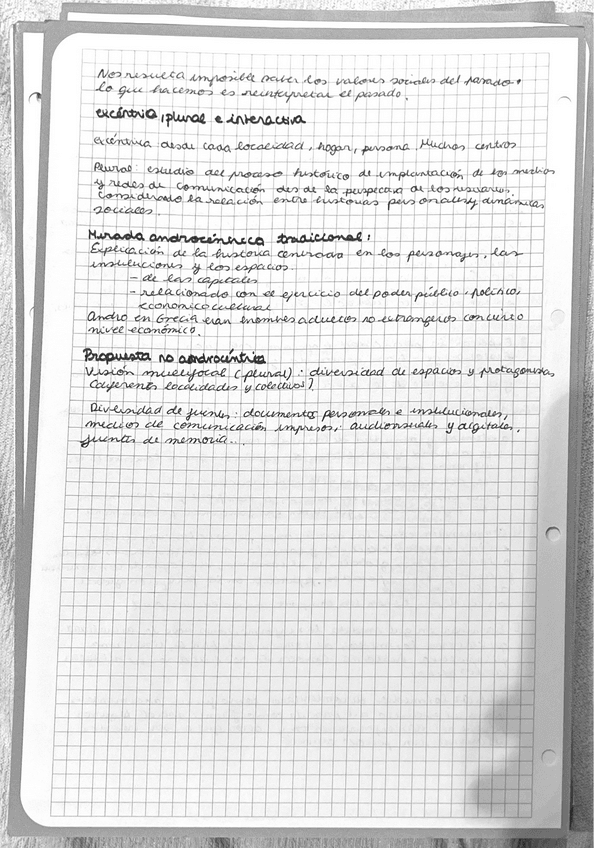 Nos resulta imposible saber los valores sociales del pasado.
lo que hacemos es reinterpretar el pasado.
excéntrica, plural e interactiva
excéntrica desde cada localidad, hogar, persona. Muchos centros
Plural: estudio del proceso histórico de implantación de los medios
y redes de comunicación des de la perspectiva de los usuarios.
Considerado la relación entre historias personales y dinámicas
sociales.
Mirada androcéntrica tradicional:
Explicación de la historia centrada en los personajes, las
instituciones y los espacios.
- de las capitales
- relacionado con el ejercicio del poder público, político,
económico cultural
Andro en Grecia eran hombres adultos no extrangeros con cierto
nivel económico.
Propuesta no androcéntrica
Visión multifocal (plural): diversidad de espacios y protagonistas,
(diferents localidades y colectivos).
Diversidad de fuentes: documentos personales e institucionales,
medios de comunicación impresos, audiovisuales y digitales,
fuentes de memoria...